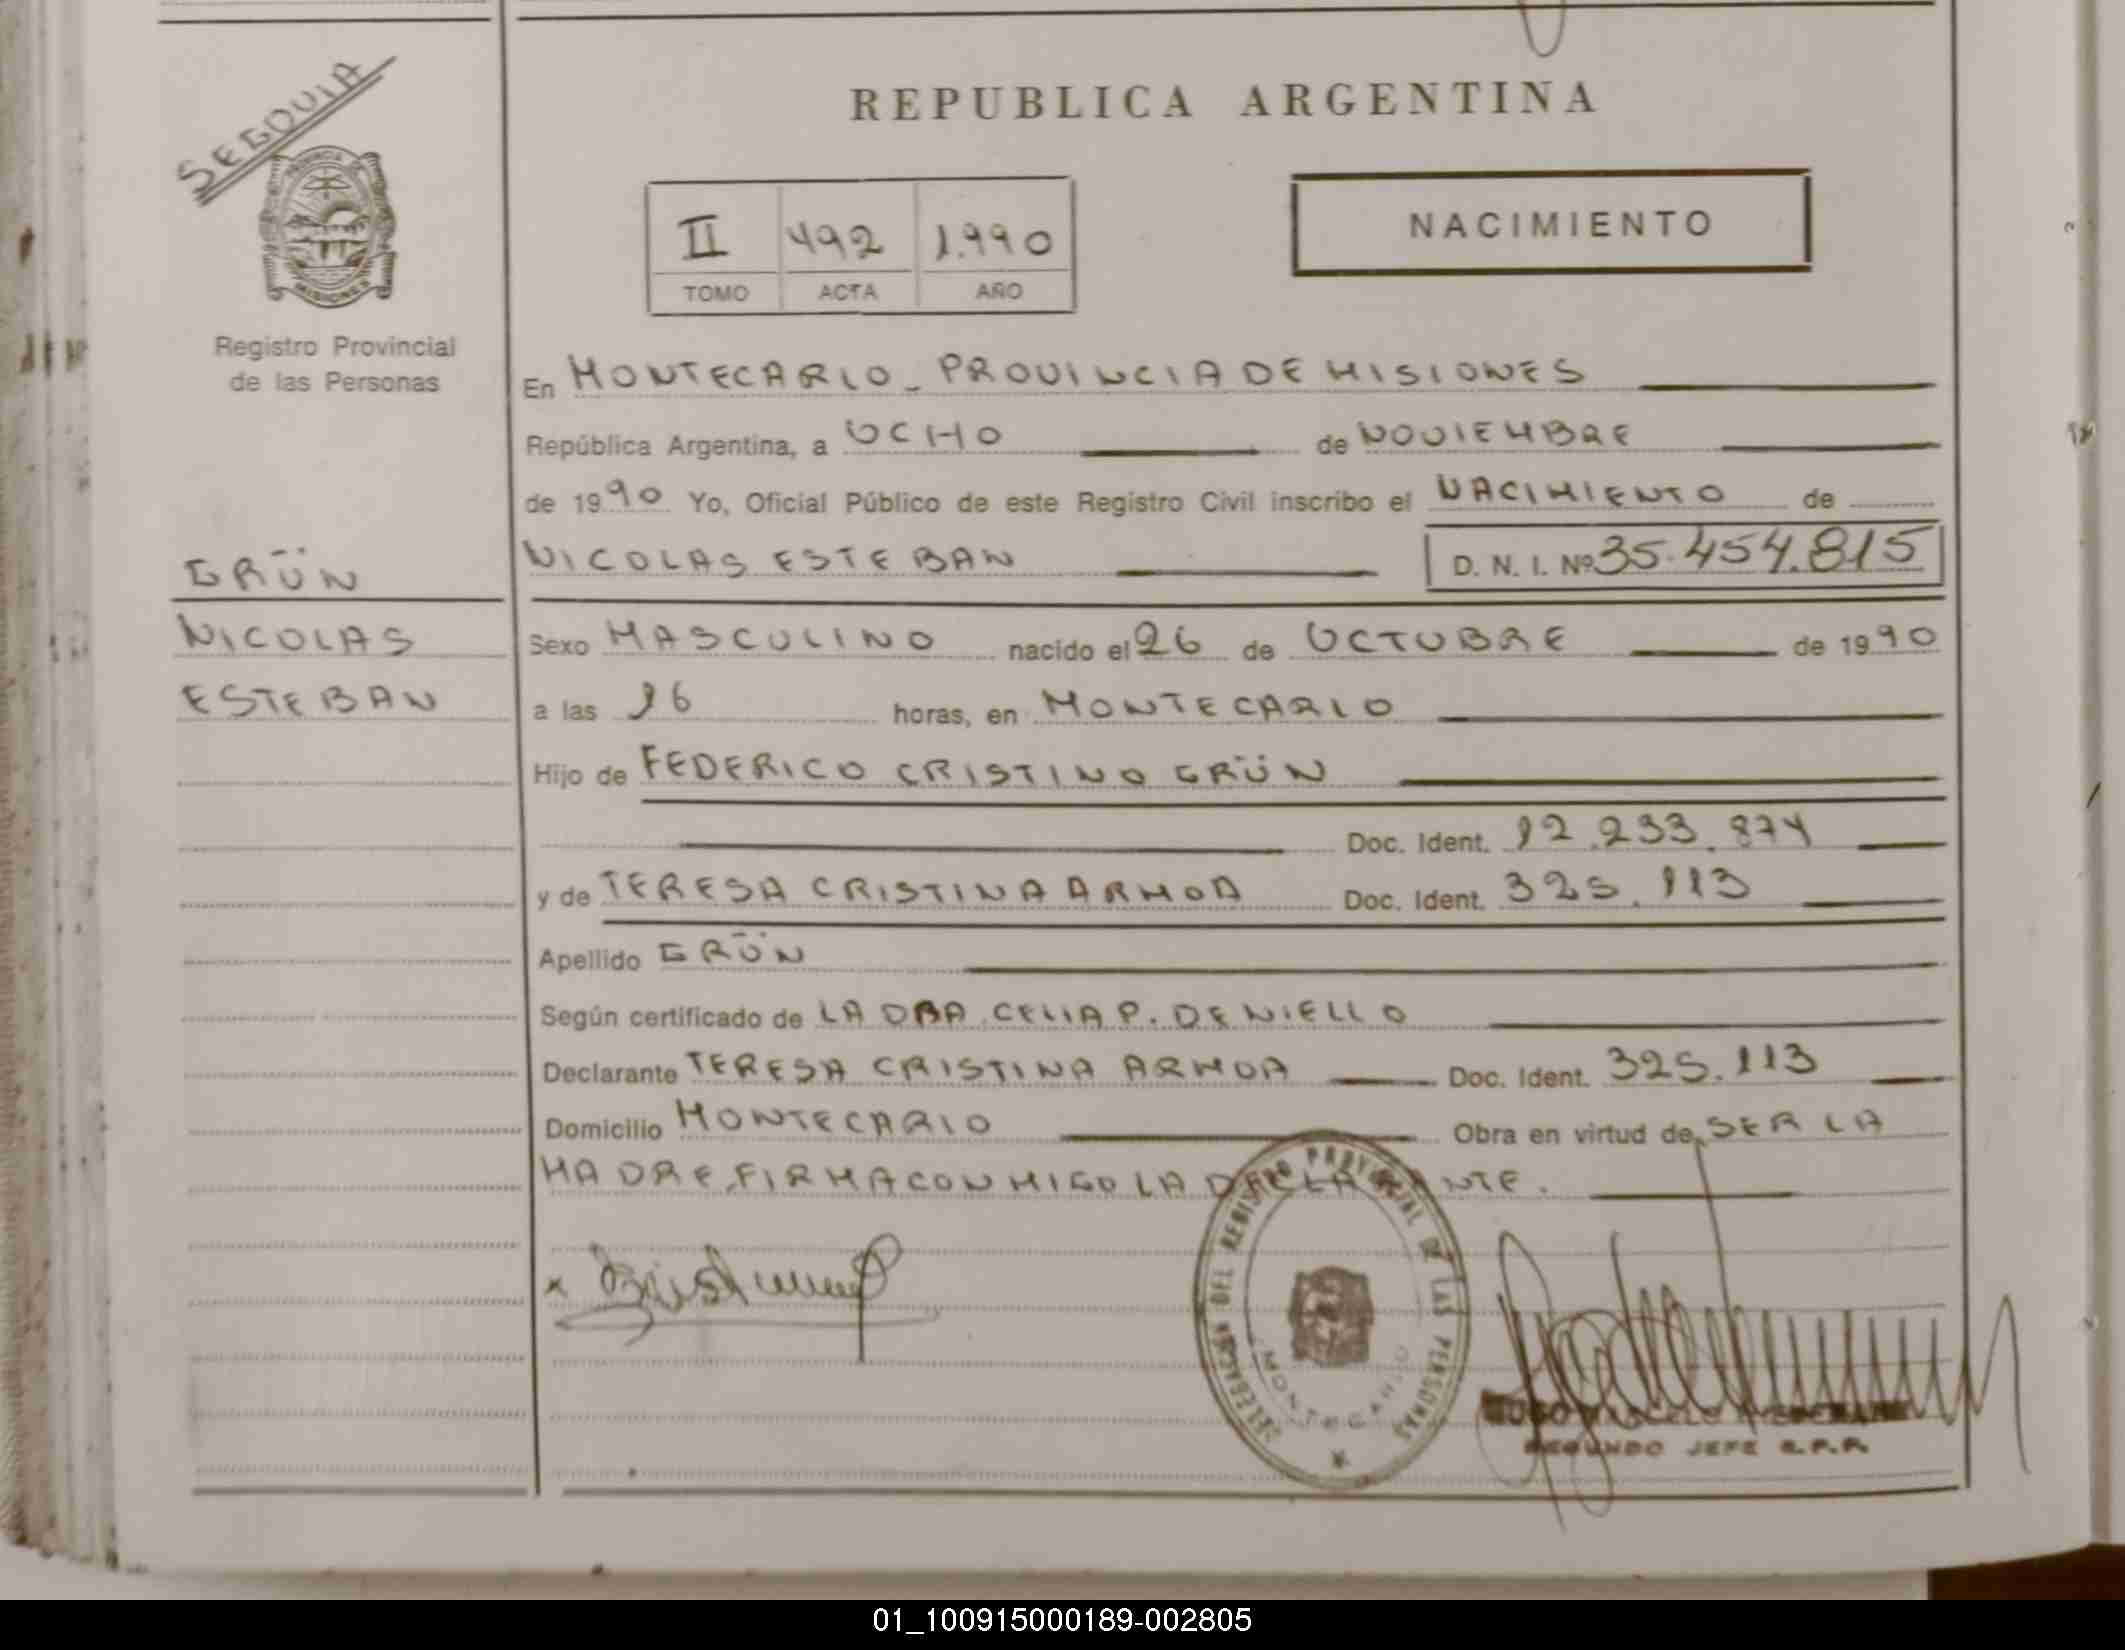 SEGOVIA
PROVINCIA DE
MISIONES
Registro Provincial
de las Personas
REPUBLICA ARGENTINA
II 492 1.990
TOMO ACTA AÑO
NACIMIENTO
En MONTECARLO - PROVINCIA DE MISIONES
República Argentina, a OCHO de NOVIEMBRE
de 1990 Yo, Oficial Público de este Registro Civil inscribo el NACIMIENTO de
GRÜN
NICOLAS ESTEBAN D. N. I. Nº 35.454.815
NICOLAS
Sexo MASCULINO nacido el 26 de OCTUBRE de 1990
ESTEBAN
a las 16 horas, en MONTECARLO
Hijo de FEDERICO CRISTINO GRÜN
Doc. Ident. 12.233.874
y de TERESA CRISTINA ARMOA Doc. Ident. 325.113
Apellido GRÜN
Según certificado de LA DRA. CELIA P. DE NIELLO
Declarante TERESA CRISTINA ARMOA Doc. Ident. 325.113
Domicilio MONTECARLO Obra en virtud de SER LA
MADRE, FIRMA CONMIGO LA DECLARANTE.
DELEGACIÓN DEL REGISTRO PROVINCIAL DE LAS PERSONAS
MONTECARLO
SEGUNDO JEFE R.P.P.
01_100915000189-002805